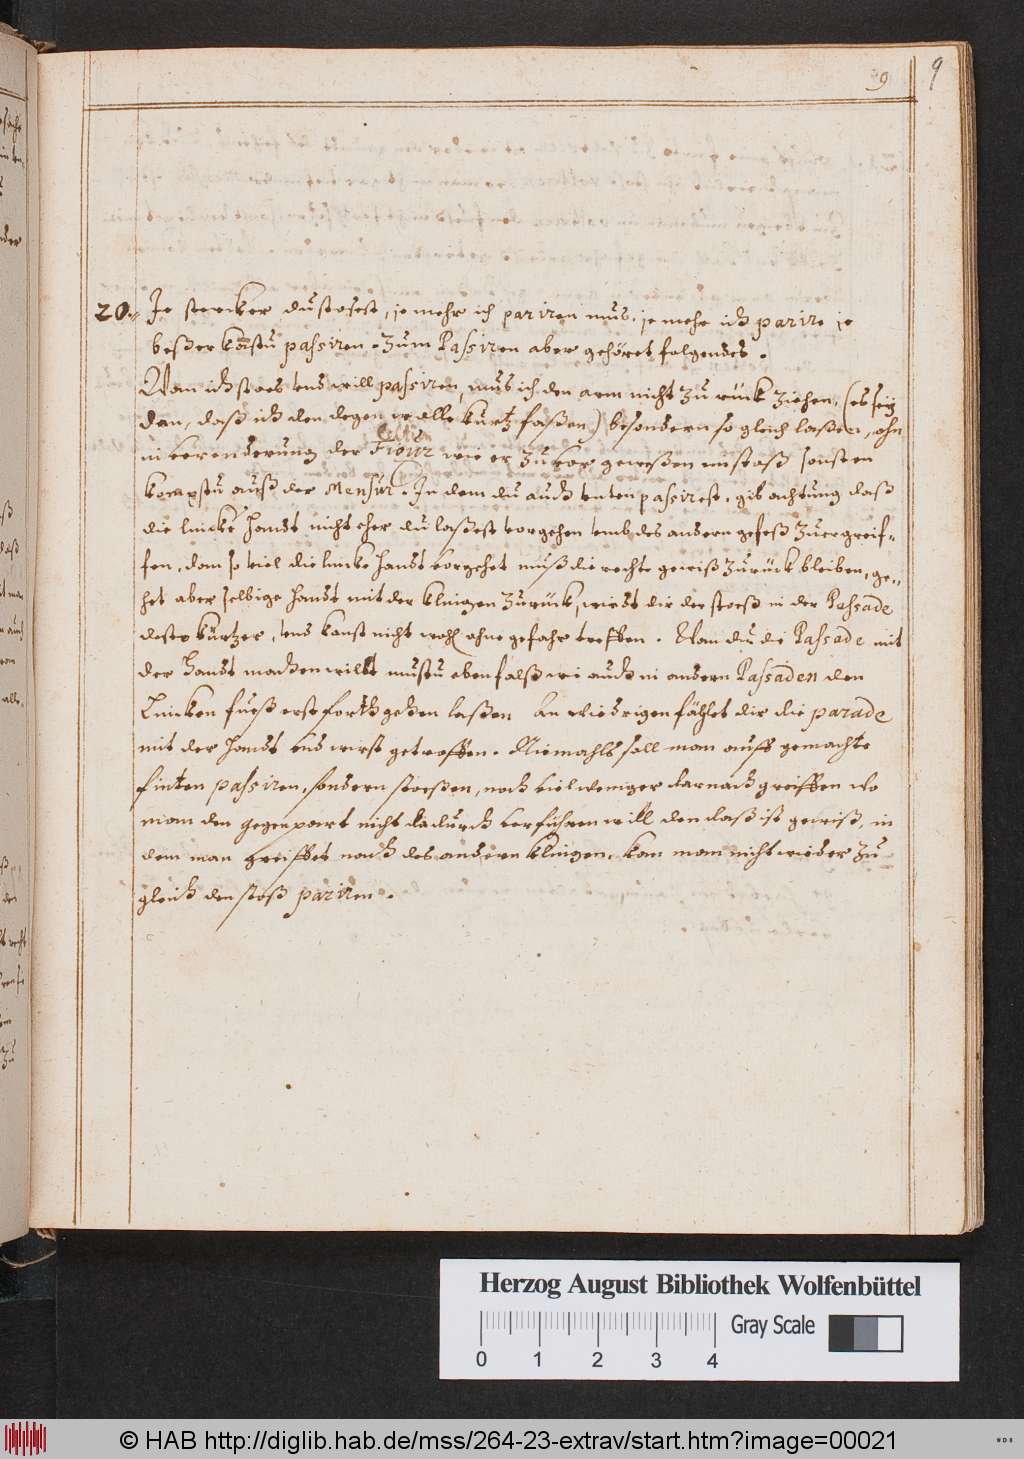 9
9
20. Je stercker du stosest, je mehr ich pariren mus, je mehr ich parire je
beßer konstu passiren. Zum Passiren aber gehöret folgendes.
Wan ich stoes und will passiren, mus ich den arm nicht zu rück ziehen, (es sey
dan, daß ich den degen walle kurtz faßen) besondern so gleich laßen, ohn
verenderung der Figur wie er zu vor gewesen im stoß sonsten
kompstu auß der Mensur. In dem du auch unten passirest, gib achtung daß
die lincke Handt nicht eher du laßest vorgehen umb des andern gefeß zuergreif-
fen, dan so viel die lincke Handt vorgehet muß die rechte gewiß zurück bleiben, ge-
het aber selbige Handt mit der klingen zurück, wirdt dir der stoeß in der Passade
desto kürtzer, und kanst nicht wohl ohne gefahr treffen. Wan du die Passade mit
der Handt machen wilst mustu ebenfalß wi auch in andern Passaden den
Lincken fueß erst forth gehen laßen An wiedrigen fählet dir die parade
mit der Handt und wirst getroffen. Niemahls soll man auff gemachte
finten passiren, sondern stoeßen, noch viel weniger darnach greiffen wo
man den gegenpart nicht dadurch verführen will den daß ist gewiß, in
dem man greiffet nach des andern klingen, kan man nicht wieder zu
gleich den stoß pariren.
Herzog August Bibliothek Wolfenbüttel
0 1 2 3 4
Gray Scale
© HAB http://diglib.hab.de/mss/264-23-extrav/start.htm?image=00021